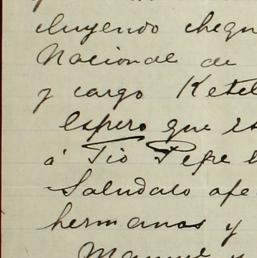 cluyendo cheque
Nacional de
y cargo Ketel
espero que es
á Tio Pepe l
Saludalo afe
hermanas y